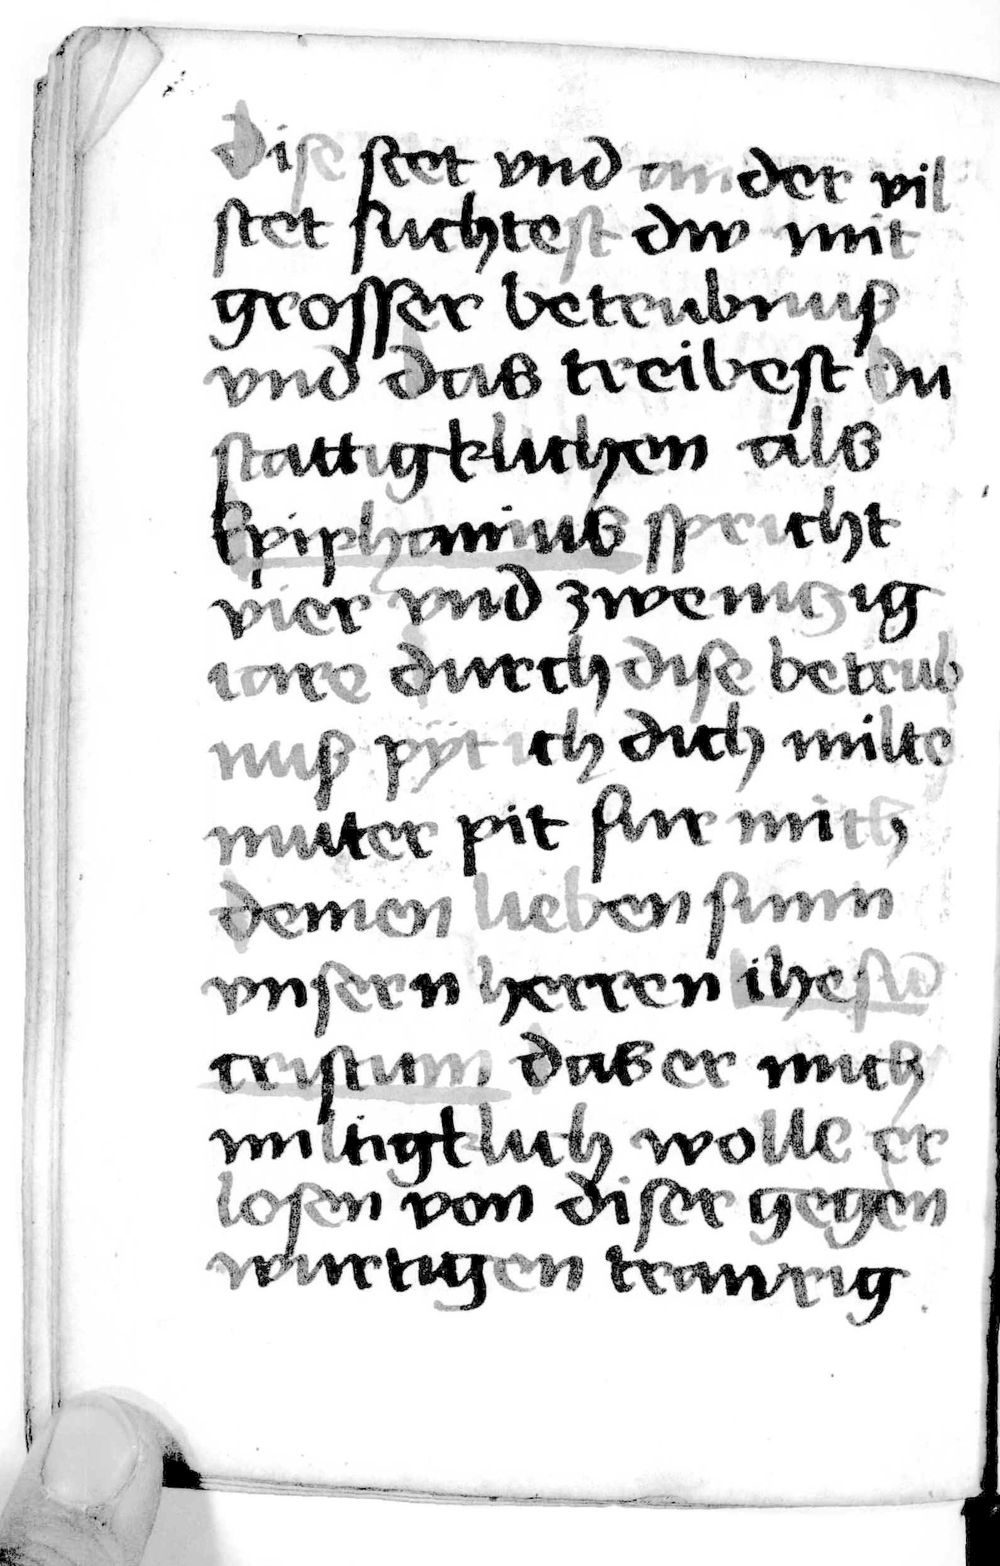 Dise stet vnd ander vil
stet suchtest dw mit
grosser betrubnuß
vnd das treibest du
stattigklichen als
Epiphanius spricht
vier vnd zwenczig
iare durch dise betrub
nuß pyt ich dich milte
muter pit fur mich
deinen lieben sunn
vnsern herren ihesum
cristum das er mich
miltigklich wolle er
losen von diser gegen
wurtigen traurig